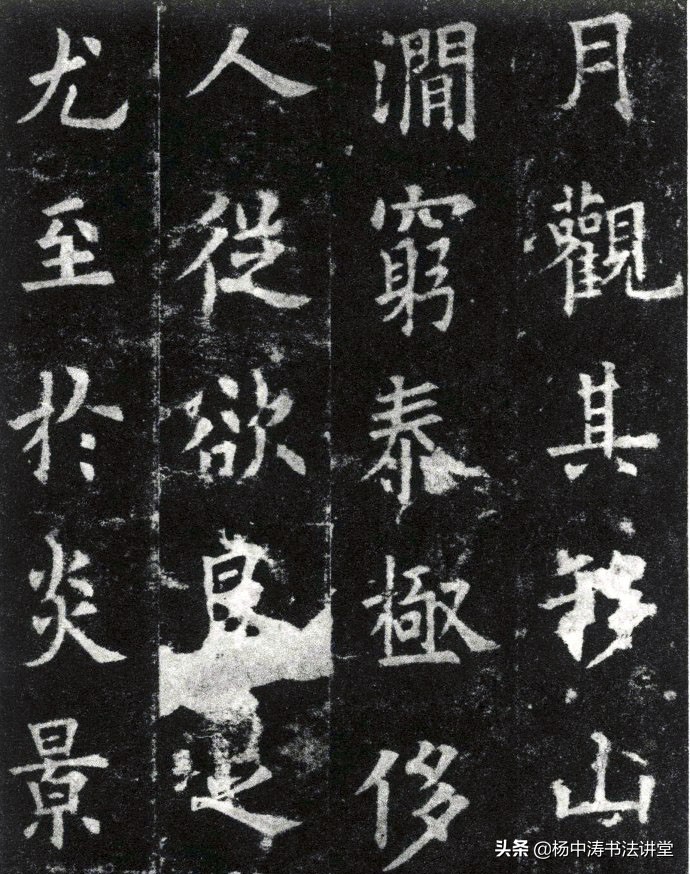 月觀其移山
澗窮泰極侈
人從欲良足
尤至於炎景
头条 @杨中涛书法讲堂